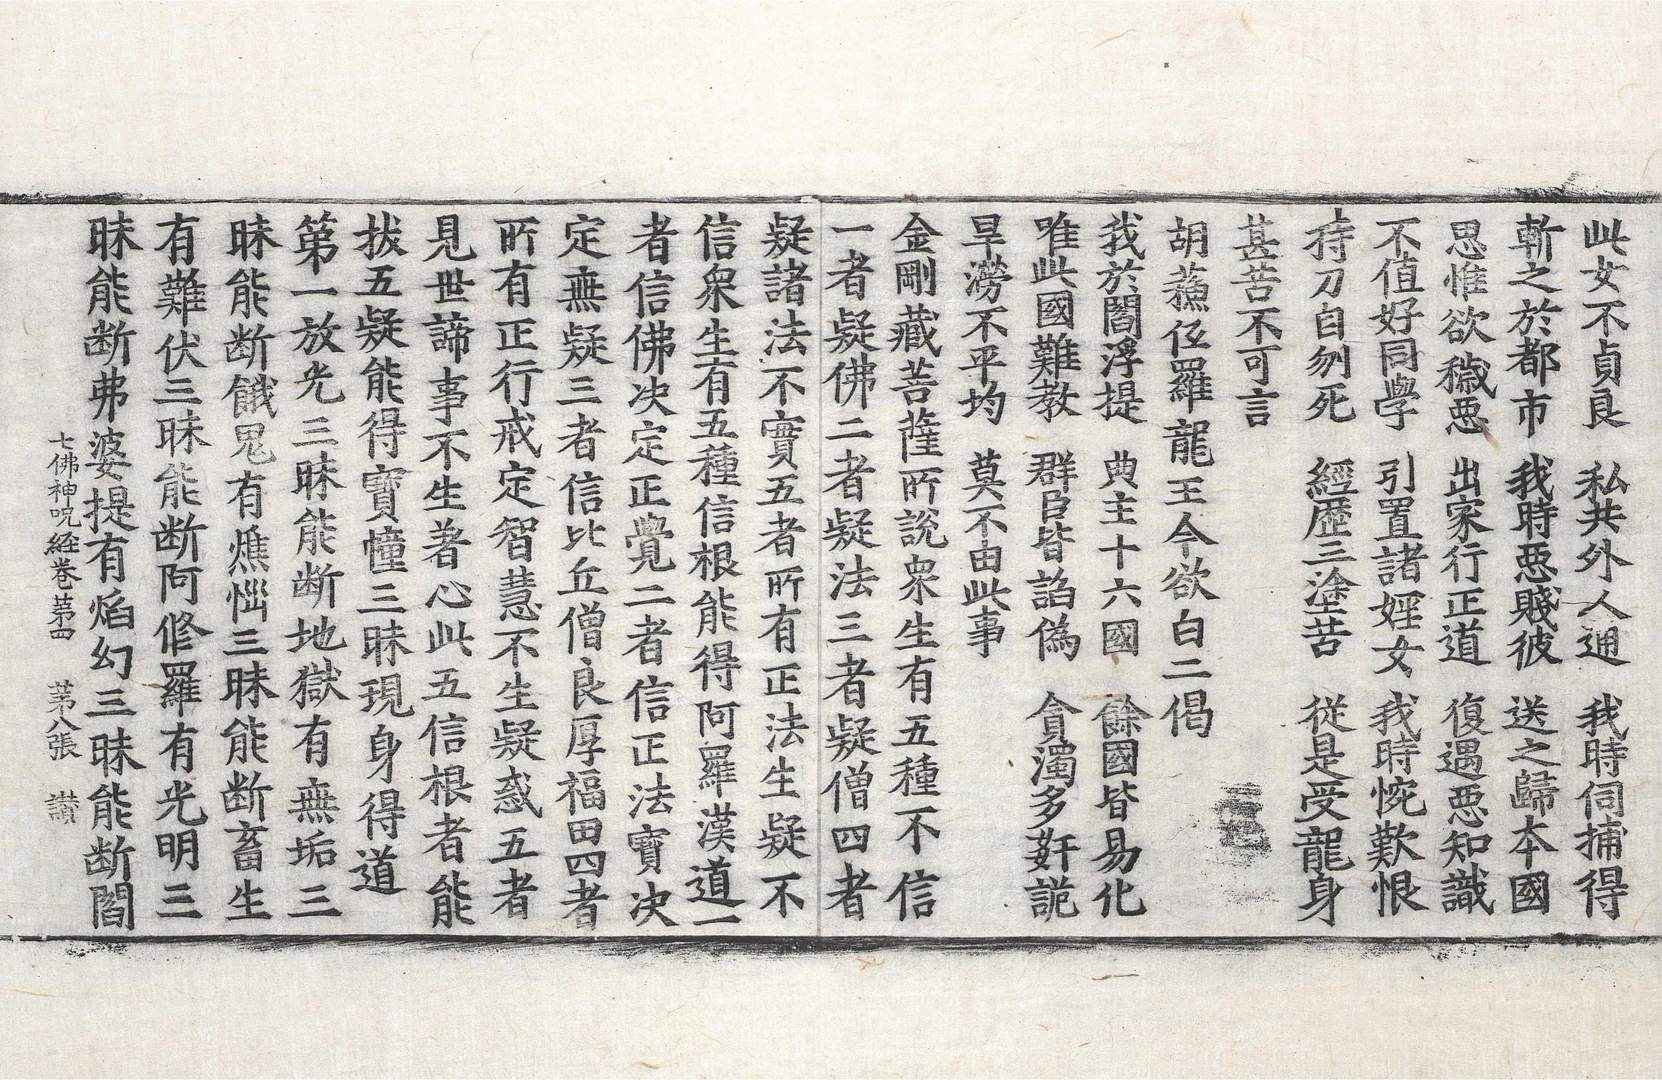 此女不貞良 私共外人通 我時伺捕得
斬之於都市 我時惡賤彼 送之歸本國
思惟欲穢惡 出家行正道 復遇惡知識
不值好同學 引置諸婬女 我時惋歎恨
持刀自刎死 經歷三塗苦 從是受龍身
甚苦不可言
胡蘓仾羅龍王今欲白二偈
我於閻浮提 典主十六國 餘國皆易化
唯此國難教 群臣皆諂偽 貪濁多姧詭
旱澇不平均 莫不由此事
金剛藏菩薩所說衆生有五種不信
一者疑佛二者疑法三者疑僧四者
疑諸法不實五者所有正法生疑不
信衆生有五種信根能得阿羅漢道一
者信佛决定正覺二者信正法寶决
定無疑三者信比丘僧良厚福田四者
所有正行戒定智慧不生疑惑五者
見世諦事不生著心此五信根者能
拔五疑能得寶幢三昧現身得道
第一放光三昧能断地獄有無垢三
昧能断餓鬼有燋惱三昧能断畜生
有難伏三昧能断阿修羅有光明三
昧能断弗婆提有焰幻三昧能断閻
七佛神呪経卷苐四 苐八張 讃